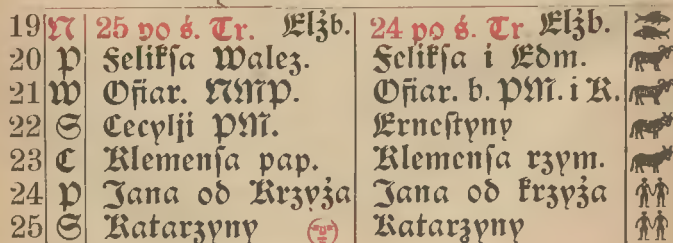 19 N 25 po ś. Tr. Elżb. 24 po ś. Tr. Elżb.
20 P Feliksa Walez. Feliksa i Edm.
21 W Ofiar. NMP. Ofiar. b. PM. i K.
22 S Cecylji PM. Ernestyny
23 C Klemensa pap. Klemensa rzym.
24 P Jana od Krzyża Jana od krzyża
25 S Katarzyny Katarzyny